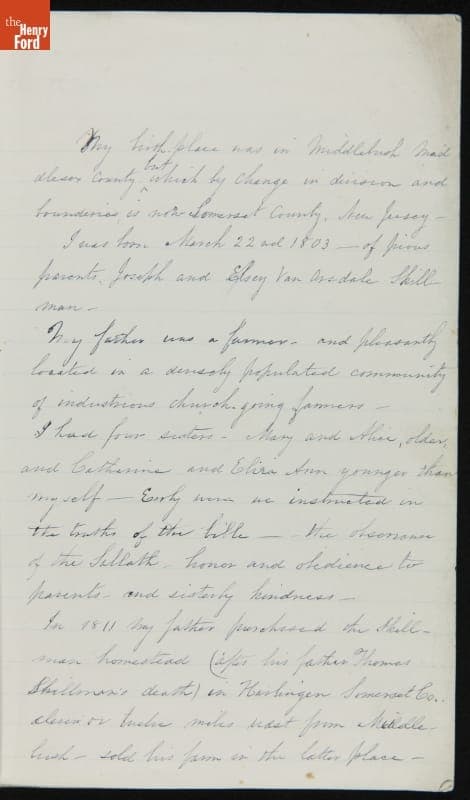 the
Henry
Ford
My birth-place was in Middlebush Mid
dlesex County but which by change in division and
bounderies is now Somerset County, New Jersey -
I was born March 22nd 1803 - of pious
parents, Joseph and Elsey Van Arsdale Skill-
man -
My father was a farmer - and pleasantly
located in a densely populated community
of industrious church-going farmers -
I had four sisters - Mary and Alice, older,
and Catharine and Eliza Ann younger than
myself - Early were we instructed in
the truths of the bible - the observance
of the Sabbath - honor and obedience to
parents - and sisterly kindness -
In 1811 my father purchased the Skill-
man homestead (after his father Thomas
Skillman's death) in Harlingen Somerset Co.
eleven or twelve miles west from Middle-
bush - sold his farm in the latter place -